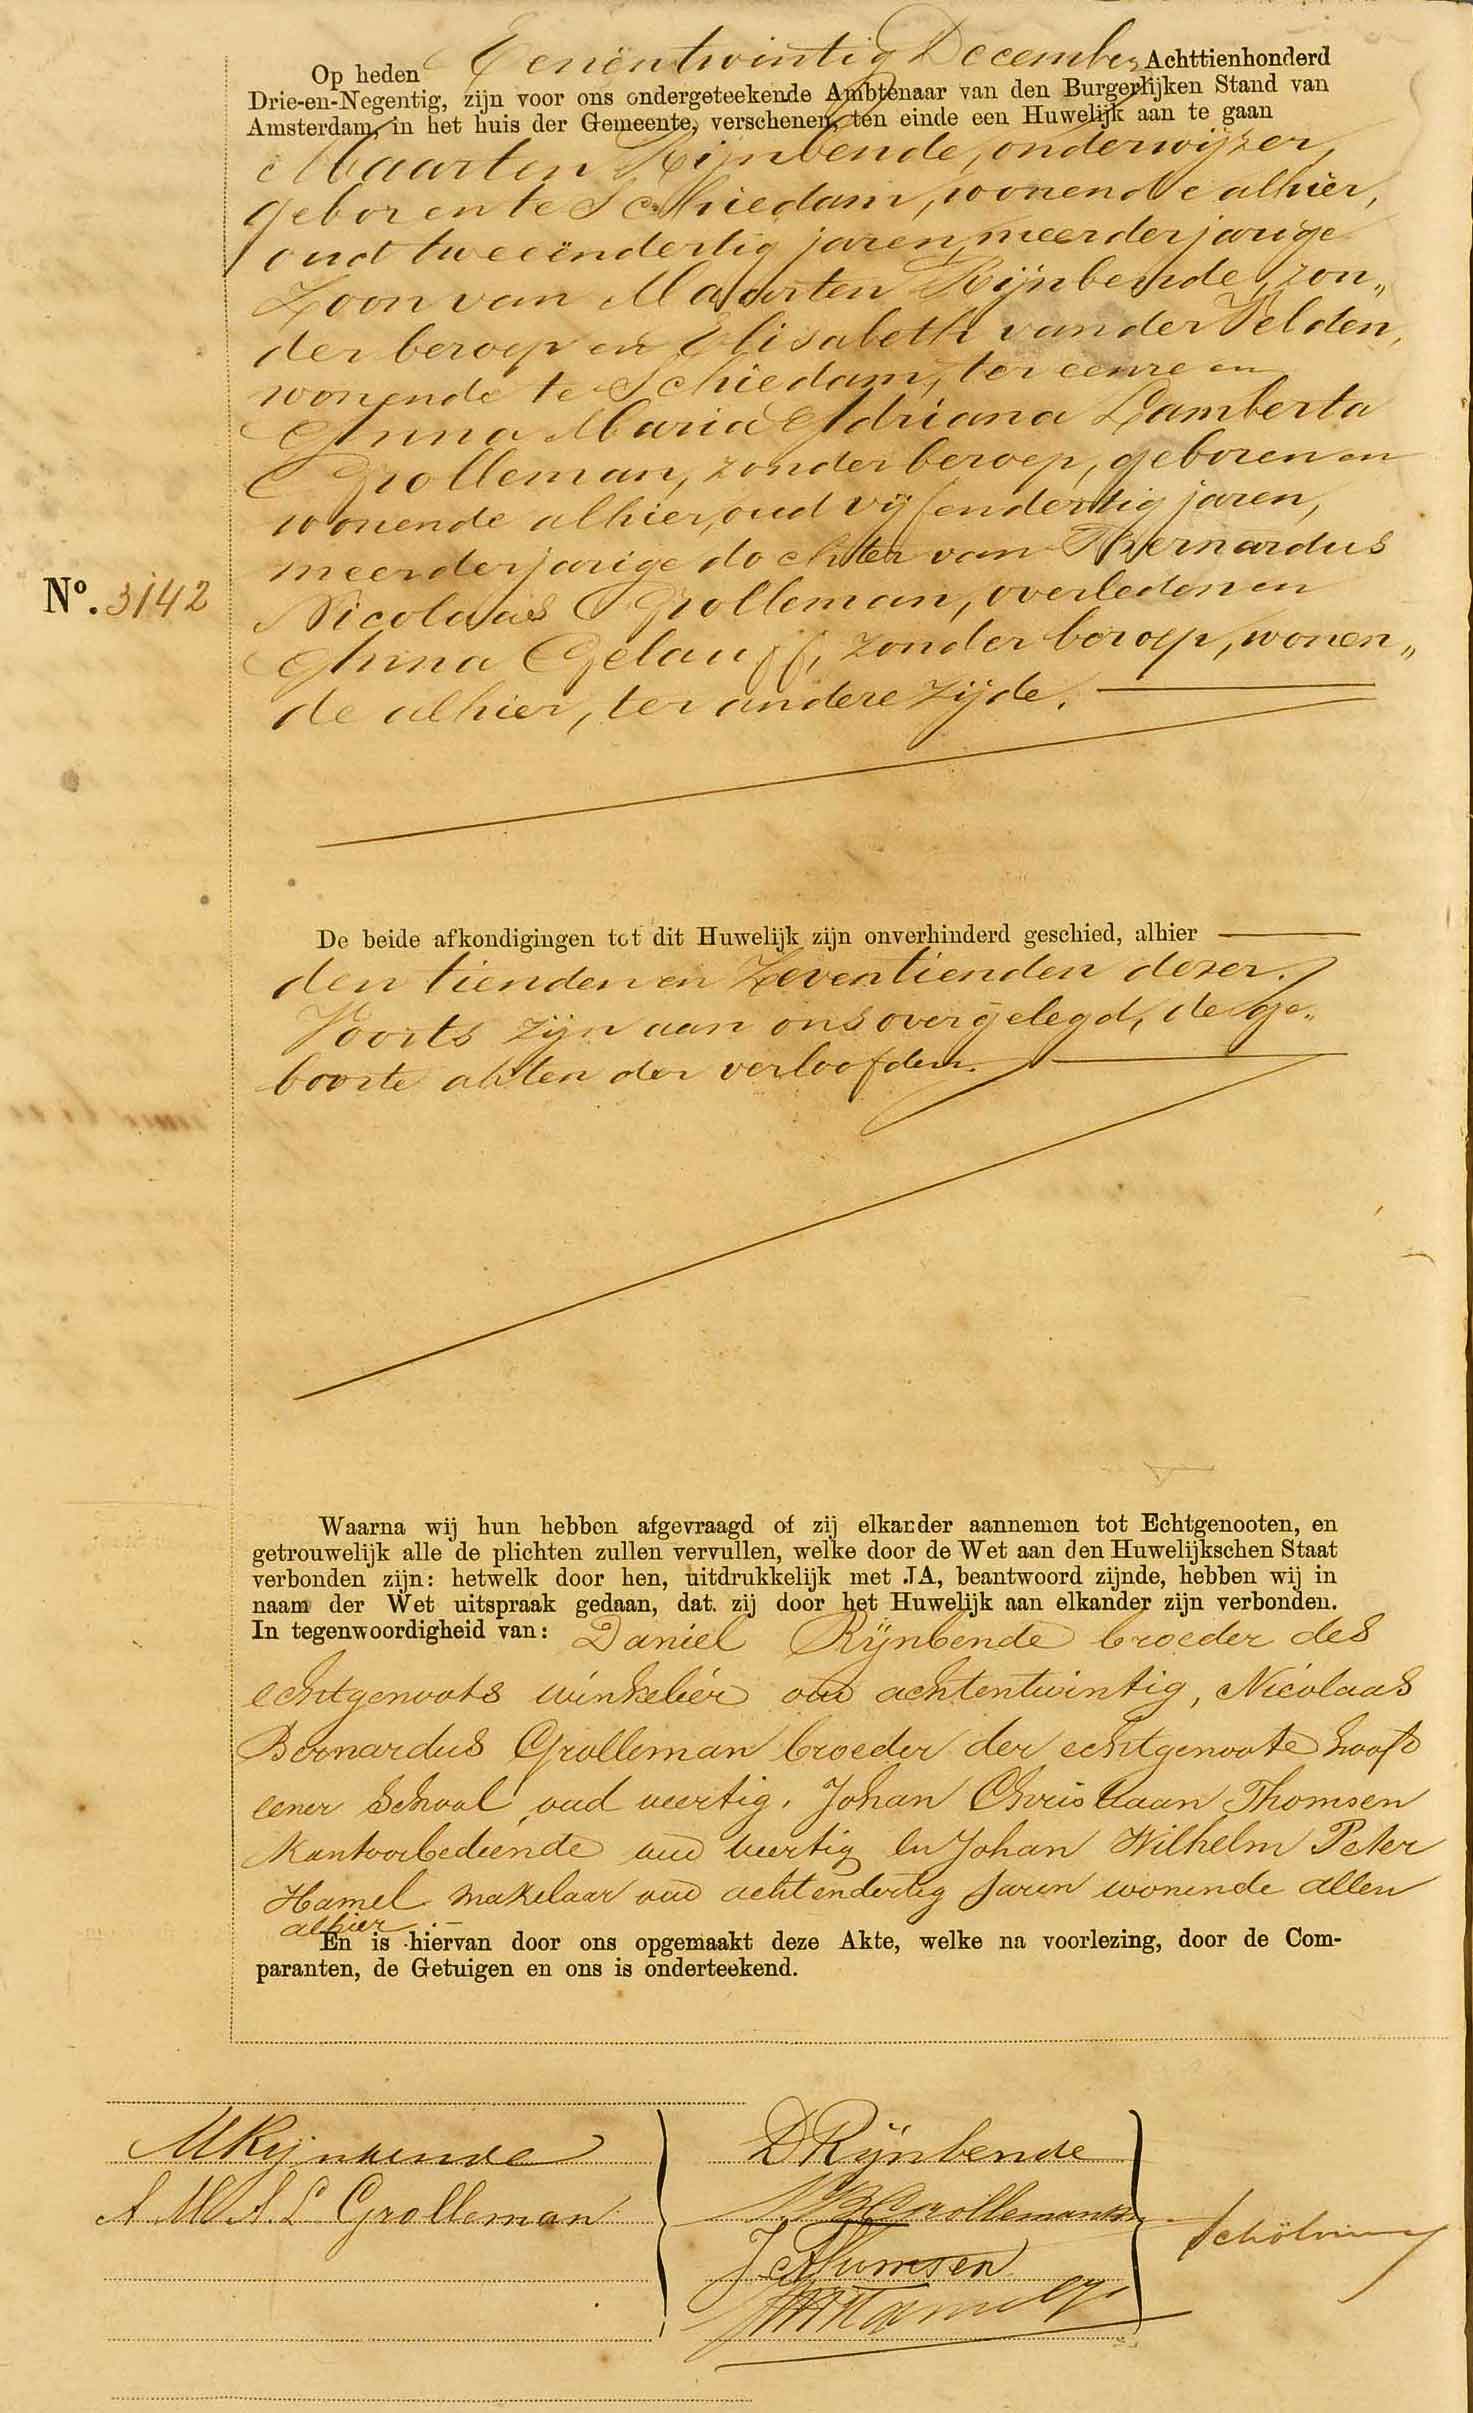 Op heden Eenëntwintig December Achttienhonderd
Drie-en-Negentig, zijn voor ons ondergeteekende Ambtenaar van den Burgerlijken Stand van
Amsterdam, in het huis der Gemeente, verschenen, ten einde een Huwelijk aan te gaan
Maarten Rijnbende, onderwijzer,
geboren te Schiedam, wonende alhier,
oud tweeëndertig jaren, meerderjarige
Zoon van Maarten Rijnbende, zon„
der beroep en Elisabeth van der Velden,
wonende te Schiedam, ter eenre en
Anna Maria Adriana Lamberta
Grolleman, zonder beroep, geboren en
wonende alhier, oud vijfendertig jaren,
meerderjarige dochter van Bernardus
Nº. 3142
Nicolaas Grolleman, overleden en
Anna Gelauff, zonder beroep, wonen„
de alhier, ter andere zijde.
De beide afkondigingen tot dit Huwelijk zijn onverhinderd geschied, alhier
den tienden en Zeventienden dezer.
Voorts zijn aan ons overgelegd, de ge„
boorte akten der verloofden.
Waarna wij hun hebben afgevraagd of zij elkander aannemen tot Echtgenooten, en
getrouwelijk alle de plichten zullen vervullen, welke door de Wet aan den Huwelijkschen Staat
verbonden zijn: hetwelk door hen, uitdrukkelijk met JA, beantwoord zijnde, hebben wij in
naam der Wet uitspraak gedaan, dat zij door het Huwelijk aan elkander zijn verbonden.
In tegenwoordigheid van: Daniel Rijnbende broeder des
echtgenoots winkelier oud achtentwintig, Nicolaas
Bernardus Grolleman broeder der echtgenoote hoofd
eener School oud veertig, Johan Christiaan Thomsen
Kantoorbediende oud veertig en Johan Wilhelm Peter
Hamel makelaar oud achtendertig jaren wonende allen
alhier.
En is hiervan door ons opgemaakt deze Akte, welke na voorlezing, door de Com-
paranten, de Getuigen en ons is onderteekend.
MRijnbende
A M A L Grolleman
DRijnbende
N.B.Grolleman
JCThomsen
JWPHamel
Schölvinck